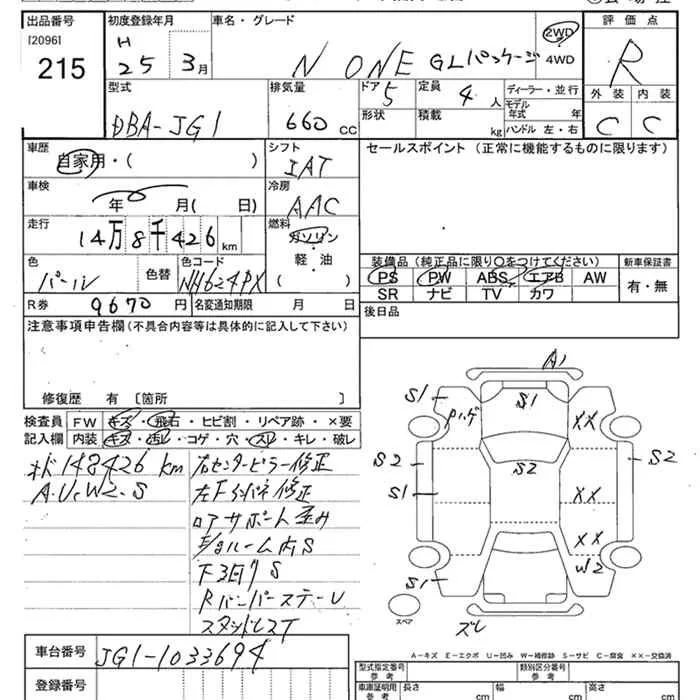 出品番号 初度登録年月 車名・グレード 評価点
[2096] H
215 25 3月 N ONE GLパッケージ 2WD 4WD R
型式 排気量 ドア 定員 ディーラー・並行 外装 内装
DBA-JG1 660 CC 5 4人 モデル年式 年 C C
形状 積載 kg ハンドル 左・右
車歴 シフト セールスポイント(正常に機能するものに限ります)
自家用・( ) IAT
車検 冷房
年 月( 日) AAC
走行 燃料
14万8千426km ガソリン
軽油
( )
色 色替 色コード 装備品(純正品に限り○をつけてください) 新車保証書
パール NH624PX PS PW ABS エアB AW 有・無
SR ナビ TV カワ
R券 9670円 名変通知期限 月 日 後日品
注意事項申告欄(不具合内容等は具体的に記入して下さい)
修復歴 有 〔箇所 〕
検査員 FW キズ・飛石・ヒビ割・リペア跡・×要
記入欄 内装 キズ・汚レ・コゲ・穴・スレ・キレ・破レ
148426km 右センターピラー修正
A.U.W2.S 左Fインパネ修正
ロアサポート歪み
ルーム内S
下回りS
Rバンパーステーし
スタッドレスT
A1
S1 S1
ハゲ XX
S2 S2 S2
S1 XX
XX
W2
S1
スペア
ズレ
A-キズ E-エクボ U-凹み W-補修跡 S-サビ C-腐食 XX-交換済
車台番号 JG1-1033694
登録番号
型式指定番号 参考 類別区分番号 参考
車庫証明用 参考 長さ cm 幅 cm 高さ cm